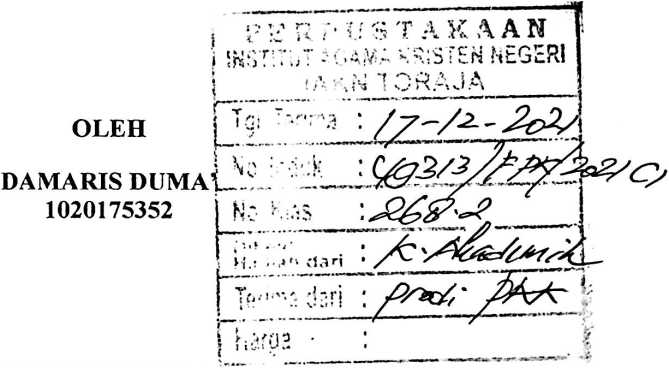 OLEH
DAMARIS DUMA'
1020175352
PERPUSTAKAAN
INSTITUT AGAMA KRISTEN NEGERI
IAKN TORAJA
Tgl Terima : 17-12-2021
No Induk : 40313/FPK/2021 C1
No Klas : 268.2
Hadiah dari : K. Akademik
Terima dari : prodi PAK
Harga :